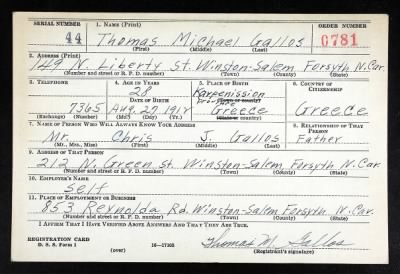 SERIAL NUMBER 1. NAME (Print) ORDER NUMBER
44 Thomas Michael Gallos 0781
(First) (Middle) (Last)
2. ADDRESS (Print)
149 N. Liberty St. Winston-Salem Forsyth N.Car.
(Number and street or R. F. D. number) (Town) (County) (State)
3. TELEPHONE 4. AGE IN YEARS 5. PLACE OF BIRTH 6. COUNTRY OF CITIZENSHIP
28 Karpenission
DATE OF BIRTH (Town or county)
7365 Aug. 29 1912 Greece Greece
(Exchange) (Number) (Mo.) (Day) (Yr.) (State or country)
7. NAME OF PERSON WHO WILL ALWAYS KNOW YOUR ADDRESS 8. RELATIONSHIP OF THAT PERSON
Mr. Chris J. Gallos Father
(Mr., Mrs., Miss) (First) (Middle) (Last)
9. ADDRESS OF THAT PERSON
212 N. Green St. Winston-Salem Forsyth N. Car.
(Number and street or R. F. D. number) (Town) (County) (State)
10. EMPLOYER'S NAME
Self
11. PLACE OF EMPLOYMENT OR BUSINESS
853 Reynolda Rd. Winston-Salem Forsyth N. Car.
(Number and street or R. F. D. number) (Town) (County) (State)
I AFFIRM THAT I HAVE VERIFIED ABOVE ANSWERS AND THAT THEY ARE TRUE.
REGISTRATION CARD
D. S. S. Form 1 (over) 16—17105 Thomas M. Gallos